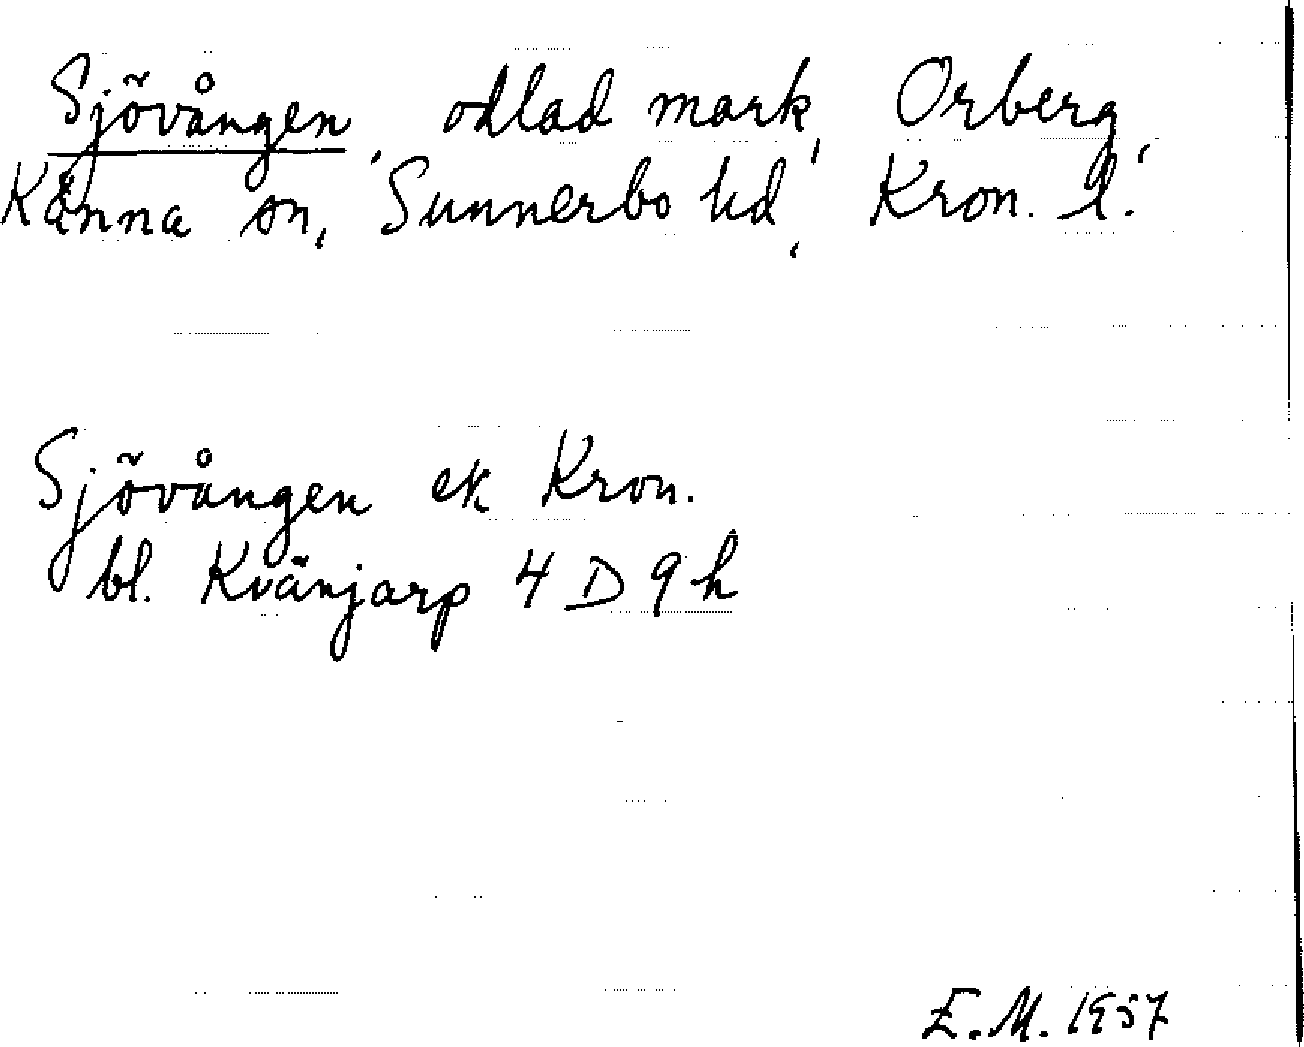 Sjövången, odlad mark, Orberg,
Känna sn, Sunnerbo hd, Kron. l.
Sjövången ek Kron.
bl. Kvänjarp 4 D 9 h
E.M. 1957